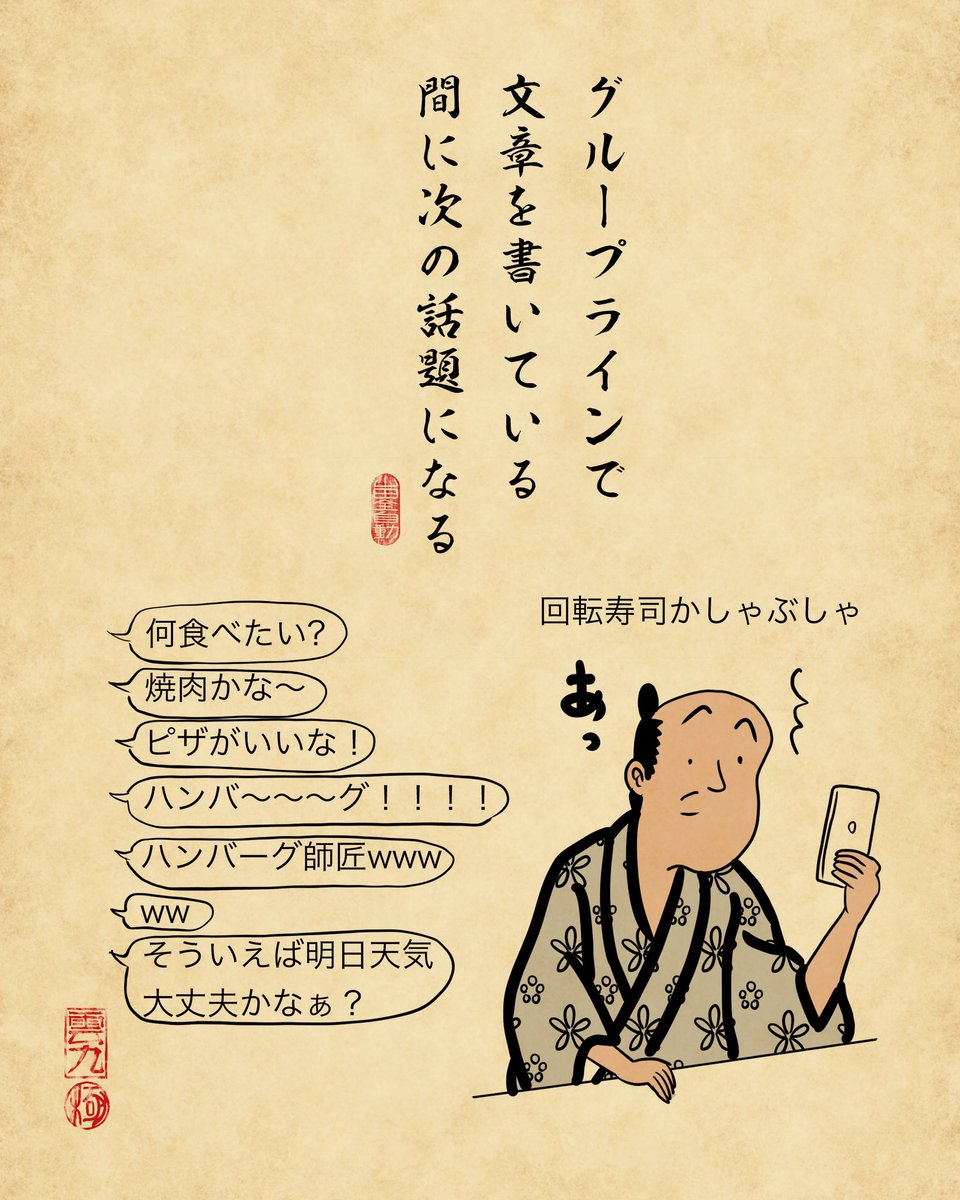 グループラインで
文章を書いている
間に次の話題になる
回転寿司かしゃぶしゃ
あっ
何食べたい?
焼肉かな〜
ピザがいいな！
ハンバ〜〜〜グ！！！！
ハンバーグ師匠www
ww
そういえば明日天気
大丈夫かなぁ？